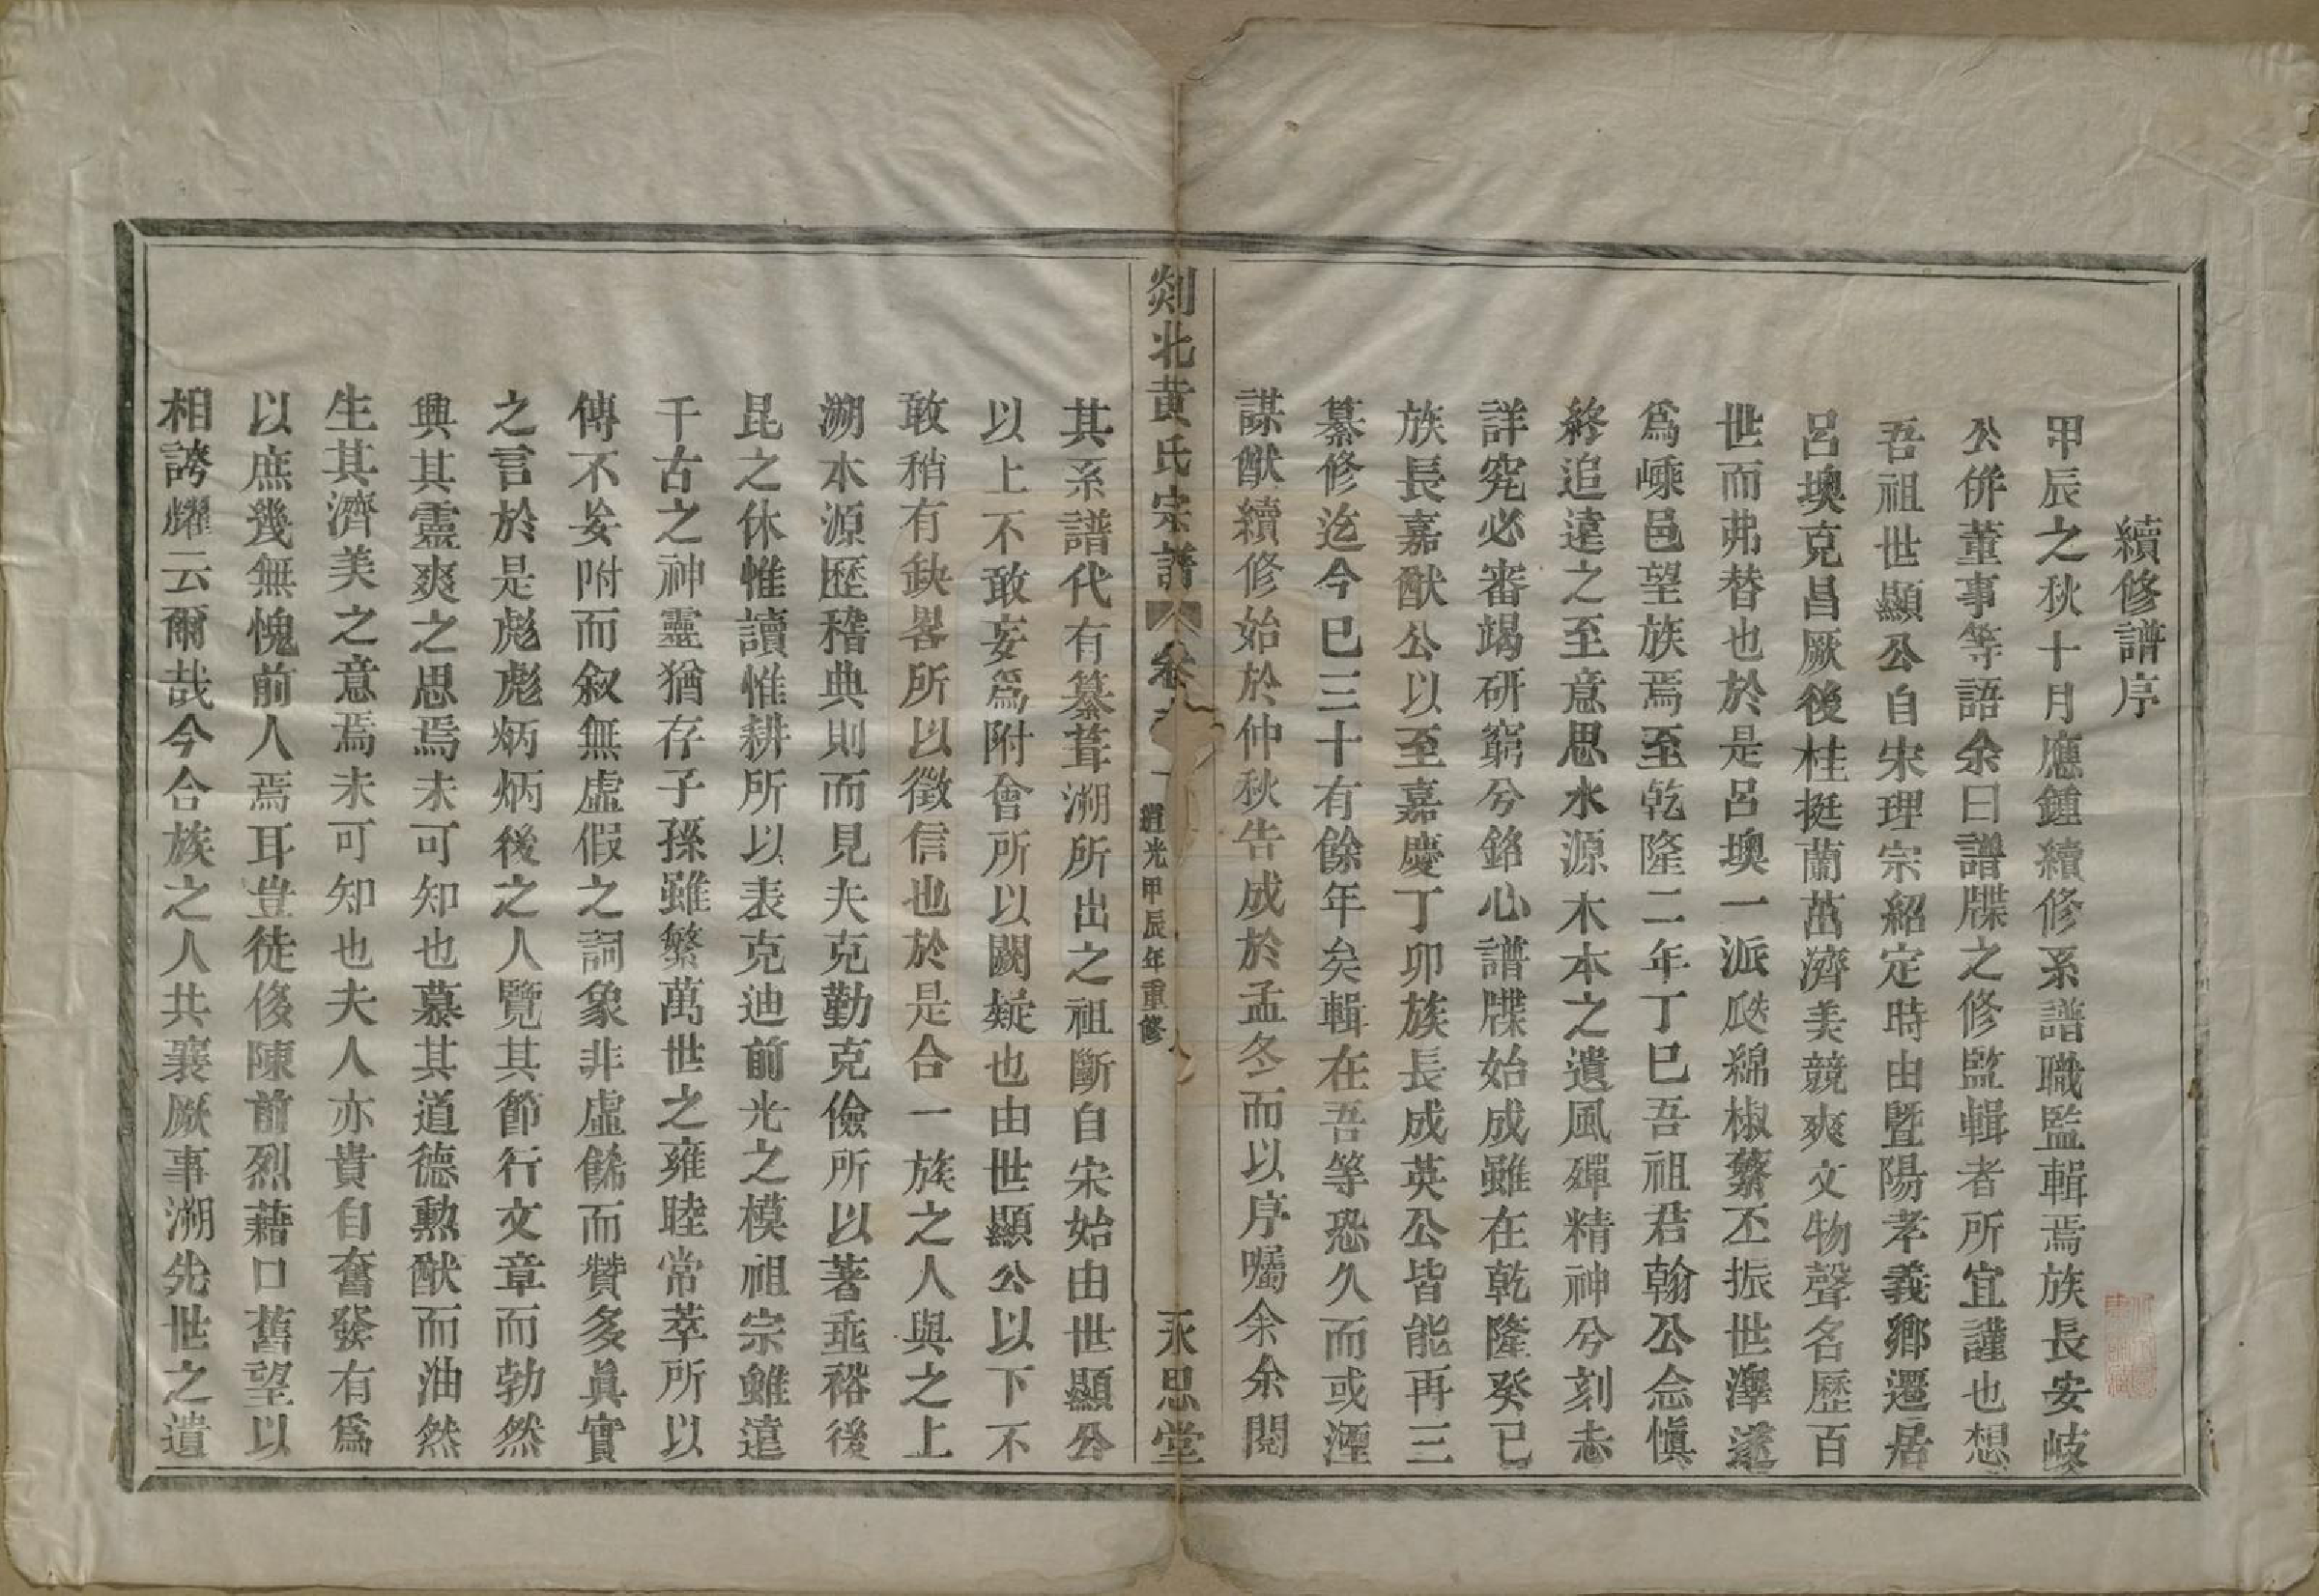 續修譜序
甲辰之秋十月應鍾續修系譜職監輯焉族長安岐
公併董事等語余曰譜牒之修監輯者所宜謹也想
吾祖世顯公自宋理宗紹定時由暨陽孝義鄉遷居
呂墺克昌厥後桂挺蘭茁濟美競爽文物聲名歷百
世而弗替也於是呂墺一派瓞綿椒蘩丕振世澤遂
爲嵊邑望族焉至乾隆二年丁巳吾祖君翰公念愼
終追遠之至意思水源木本之遺風殫精神兮刻志
詳究必審竭研窮兮銘心譜牒始成雖在乾隆癸巳
族長嘉猷公以至嘉慶丁卯族長成英公皆能再三
纂修迄今已三十有餘年矣輯在吾等恐久而或湮
謀猷續修始於仲秋告成於孟冬而以序囑余余閱
剡北黃氏宗譜 卷 道光甲辰年重修 永思堂
其系譜代有纂葺溯所出之祖斷自宋始由世顯公
以上不敢妄爲附會所以闕疑也由世顯公以下不
敢稍有缺畧所以徵信也於是合一族之人與之上
溯本源歷稽典則而見夫克勤克儉所以著垂裕後
昆之休惟讀惟耕所以表克迪前光之模祖宗雖遠
千古之神靈猶存子孫雖繁萬世之雍睦常萃所以
傳不妄附而叙無虛假之詞象非虛餙而贊多眞實
之言於是彪彪炳炳後之人覽其節行文章而勃然
興其靈爽之思焉未可知也慕其道德勲猷而油然
生其濟美之意焉未可知也夫人亦貴自奮發有爲
以庶幾無愧前人焉耳豈徒侈陳前烈藉口舊望以
相誇燿云爾哉今合族之人共襄厥事溯先世之遺